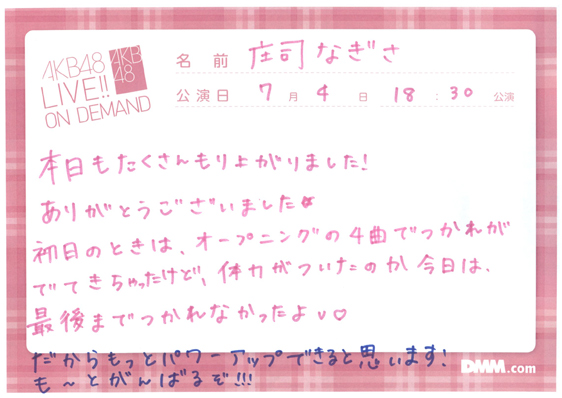 AKB48
LIVE!!
ON DEMAND
AKB
48
名前 庄司なぎさ
公演日 7月4日 18:30公演
本日もたくさんもりよがりました!
ありがとうございました
初日のときは、オープニングの4曲でつかれが
でてきちゃったけど、体力がついたのか今日は、
最後までつかれなかったよv♡
だからもっとパワーアップできると思います!
も〜とがんばるぞ!!!
DMM.com